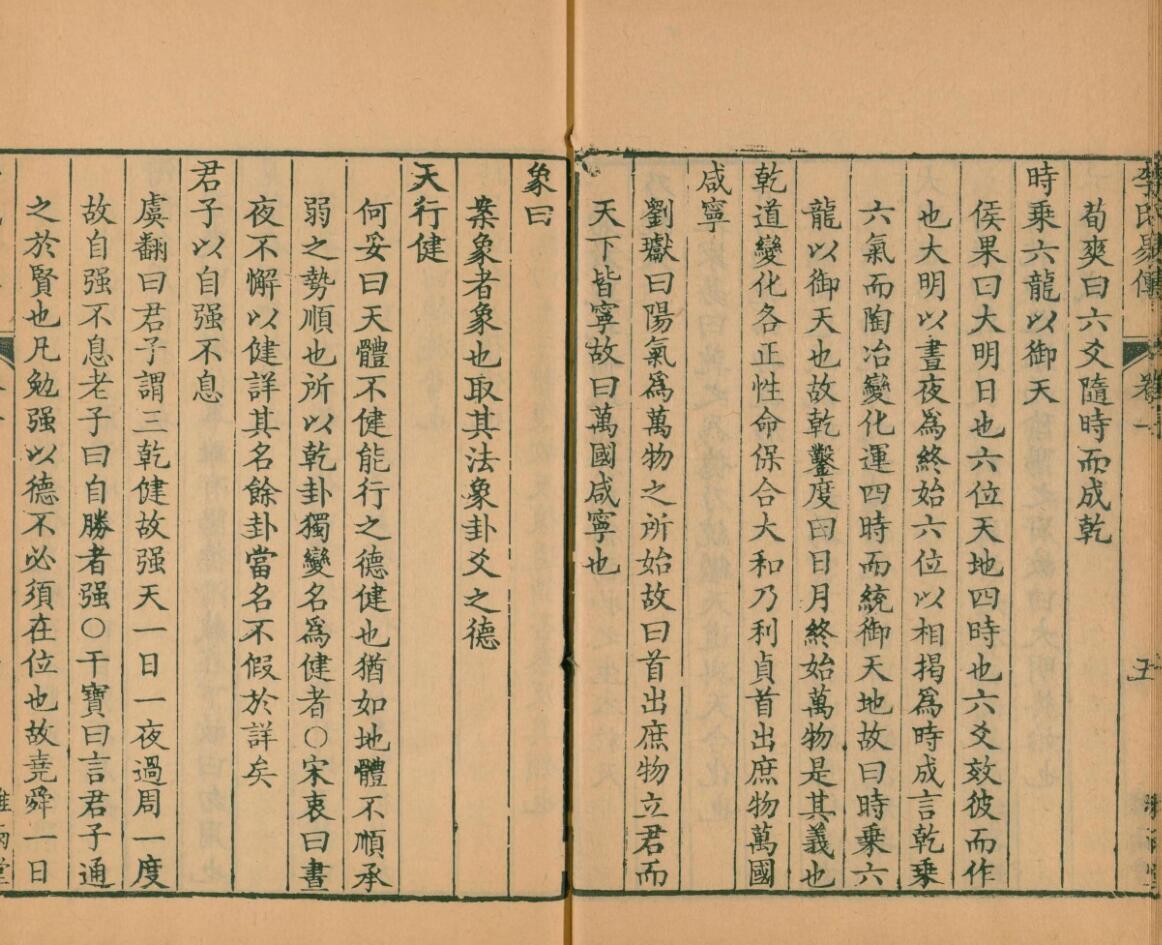 李氏易傳 卷一 五
荀爽曰六爻隨時而成乾
時乘六龍以御天
侯果曰大明日也六位天地四時也六爻效彼而作
也大明以晝夜爲終始六位以相揭爲時成言乾乘
六氣而陶冶變化運四時而統御天地故曰時乘六
龍以御天也故乾鑿度曰日月終始萬物是其義也
乾道變化各正性命保合大和乃利貞首出庶物萬國
咸寧
劉瓛曰陽氣爲萬物之所始故曰首出庶物立君而
天下皆寧故曰萬國咸寧也
象曰
案象者象也取其法象卦爻之德
天行健
何妥曰天體不健能行之德健也猶如地體不順承
弱之勢順也所以乾卦獨變名爲健者○宋衷曰晝
夜不懈以健詳其名餘卦當名不假於詳矣
君子以自强不息
虞翻曰君子謂三乾健故强天一日一夜過周一度
故自强不息老子曰自勝者强○干寶曰言君子通
之於賢也凡勉强以德不必須在位也故堯舜一日